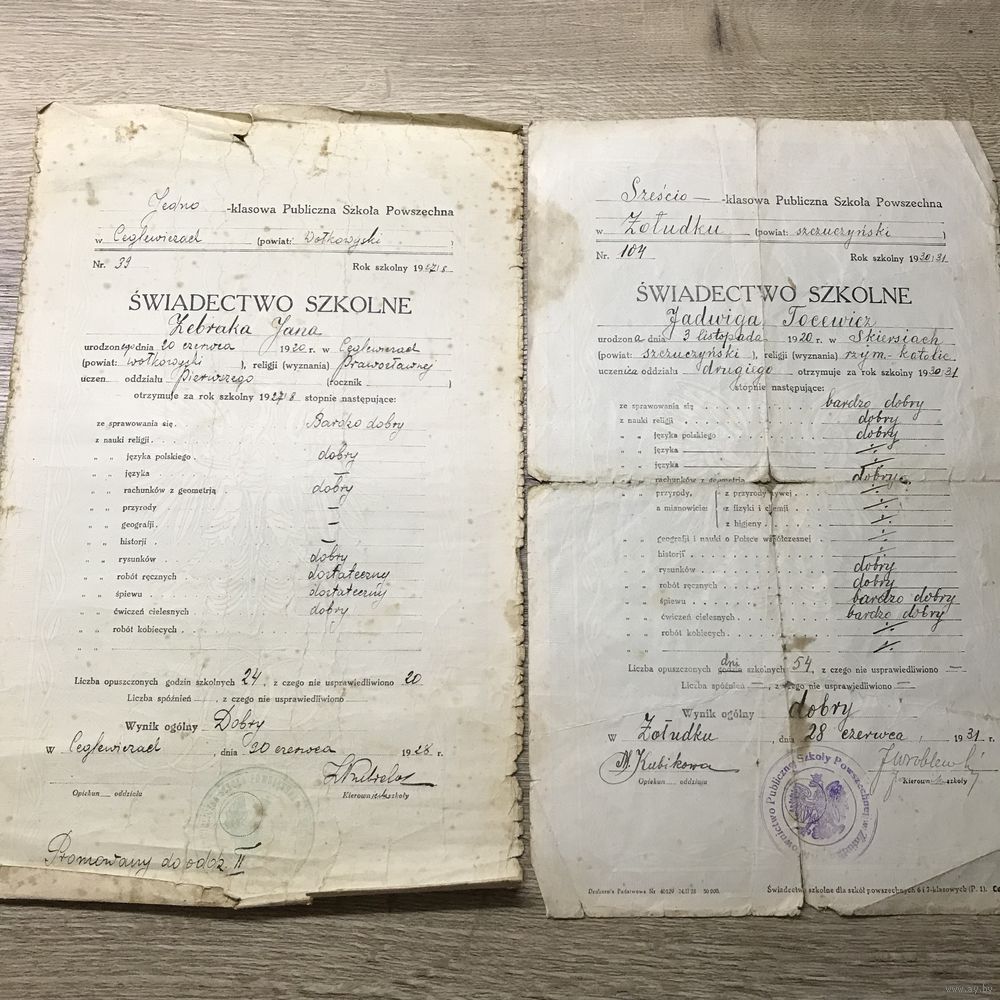 Jedno -klasowa Publiczna Szkoła Powszechna
w Ceglewiczach (powiat: Wołkowyski )
Nr. 39 Rok szkolny 1927/8
ŚWIADECTWO SZKOLNE
Żebraka Jana
urodzonego dnia 20 czerwca 1920 r. w Ceglewiczach
(powiat: wołkowyski ), religji (wyznania) Prawosławnej
uczeń oddziału Pierwszego (rocznik )
otrzymuje za rok szkolny 1927/8 stopnie następujące:
ze sprawowania się Bardzo dobry
z nauki religji
" " języka polskiego dobry
" " języka —
" " rachunków z geometrją dobry
" " przyrody —
" " geografji —
" " historji —
" " rysunków dobry
" " robót ręcznych dostateczny
" " śpiewu dostateczny
" " ćwiczeń cielesnych dobry
" " robót kobiecych
Liczba opuszczonych godzin szkolnych 24, z czego nie usprawiedliwiono 20
Liczba spóźnień , z czego nie usprawiedliwiono
Wynik ogólny Dobry
w Ceglewiczach , dnia 20 czerwca 1928 r.
Opiekun oddziału Kierownik szkoły
Promowany do oddz. II
Sześcio -klasowa Publiczna Szkoła Powszechna
w Żołudku (powiat: szczuczyński )
Nr. 104 Rok szkolny 1930/31
ŚWIADECTWO SZKOLNE
Jadwiga Tocewicz
urodzona dnia 3 listopada 1920 r. w Skiersiach
(powiat: szczuczyński ), religji (wyznania) rzym-katolic.
uczenica oddziału drugiego otrzymuje za rok szkolny 1930/31
stopnie następujące:
ze sprawowania się bardzo dobry
z nauki religji dobry
" " języka polskiego dobry
" " języka ·/·
" " języka ·/·
" " rachunków z geometrją dobry
" " przyrody, z przyrody żywej ·/·
a mianowicie: z fizyki i chemji ·/·
z higjeny ·/·
" " geografji i nauki o Polsce współczesnej ·/·
" " historji ·/·
" " rysunków dobry
" " robót ręcznych dobry
" " śpiewu bardzo dobry
" " ćwiczeń cielesnych bardzo dobry
" " robót kobiecych ·/·
" " ·/·
Liczba opuszczonych godzin dni szkolnych 54, z czego nie usprawiedliwiono —
Liczba spóźnień —, z czego nie usprawiedliwiono —
Wynik ogólny dobry
w Żołudku , dnia 28 czerwca , 1931 r.
M. Kubikowa J. Wróblewski
Opiekun oddziału Kierownik szkoły
Publicznej Szkoły Powszechnej w
Drukarnia Państwowa Nr 40129 50 000. Świadectwo szkolne dla szkół powszechnych 6 i 7-klasowych (P. 1).
www.ay.by